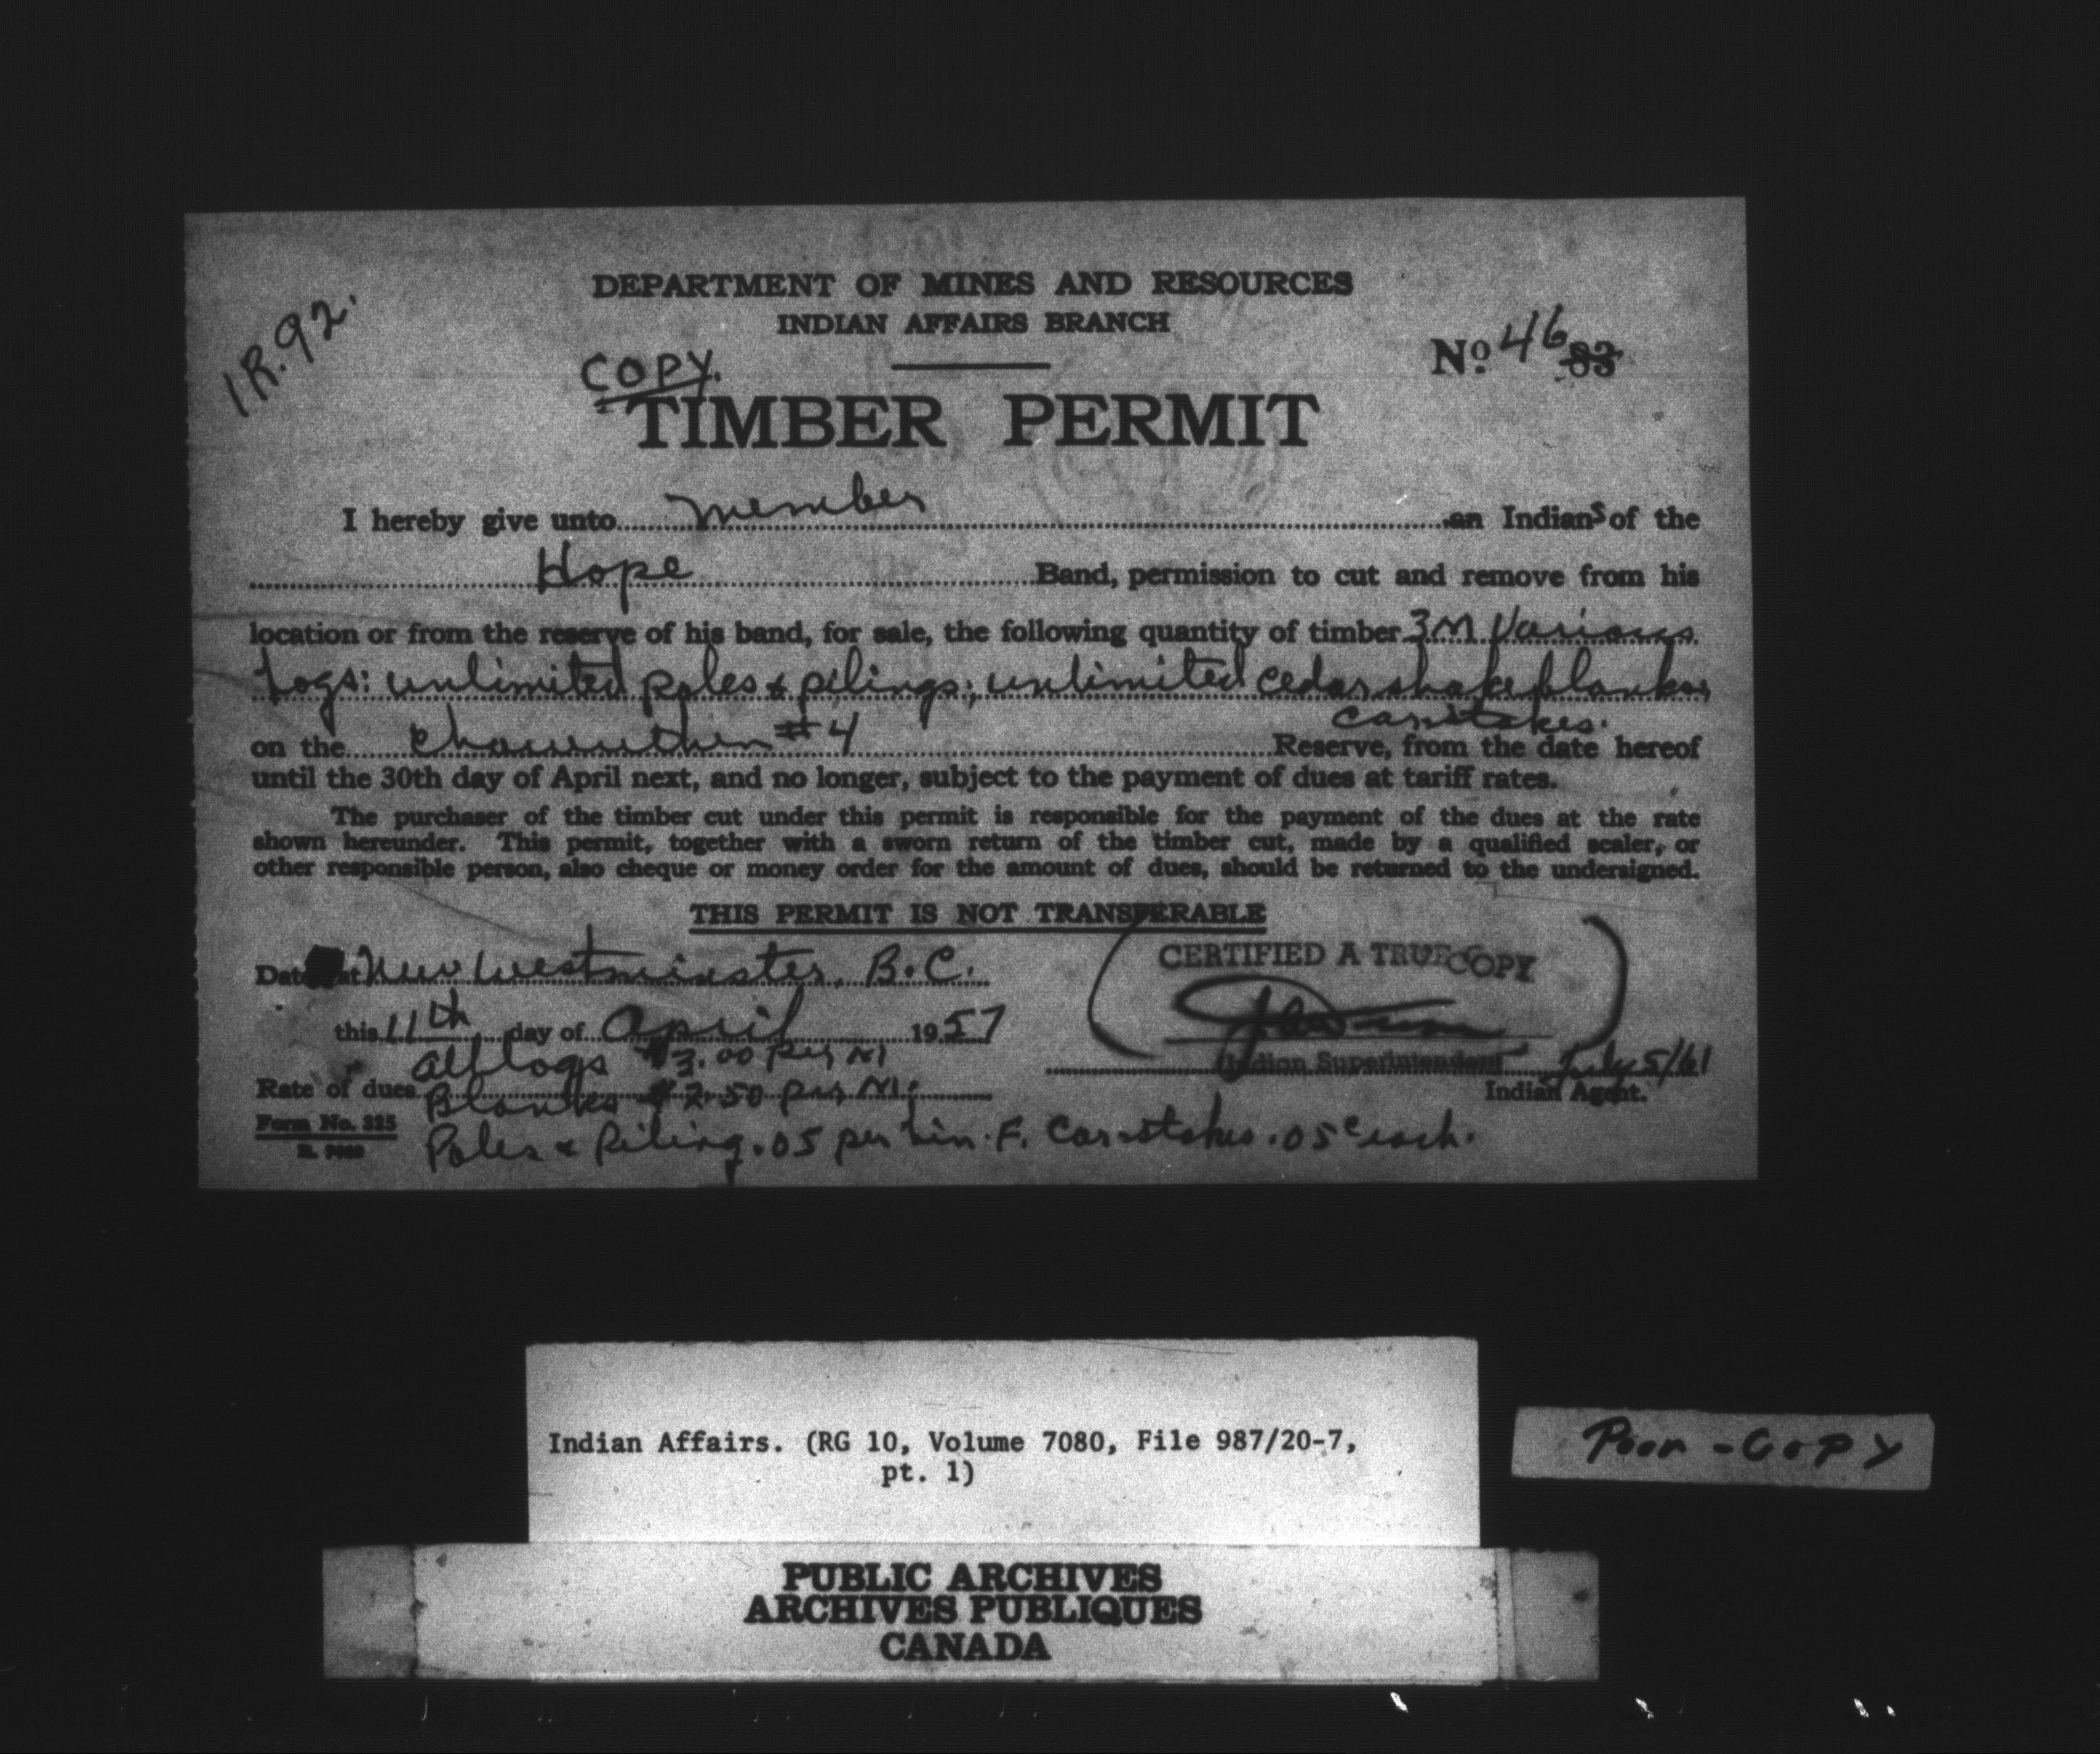 I.R. 92.
DEPARTMENT OF MINES AND RESOURCES
INDIAN AFFAIRS BRANCH
COPY.
No 46 83
TIMBER PERMIT
I hereby give unto member an Indians of the
Hope Band, permission to cut and remove from his
location or from the reserve of his band, for sale, the following quantity of timber 3M Various
Logs: unlimited poles & pilings; unlimited cedar shake planks,
car stakes.
on the #4 Reserve, from the date hereof
until the 30th day of April next, and no longer, subject to the payment of dues at tariff rates.
The purchaser of the timber cut under this permit is responsible for the payment of the dues at the rate
shown hereunder. This permit, together with a sworn return of the timber cut, made by a qualified scaler, or
other responsible person, also cheque or money order for the amount of dues, should be returned to the undersigned.
THIS PERMIT IS NOT TRANSFERABLE
CERTIFIED A TRUE COPY
Dated at New Westminster, B.C.
this 11th day of April 1957
Indian Superintendent July 5/61
Indian Agent.
All logs $3.00 per M
Rate of dues Blanks $2.50 per M.
Form No. 325
Poles & Piling .05 per Lin. F. Car stakes .05c each.
Indian Affairs. (RG 10, Volume 7080, File 987/20-7,
pt. 1)
Poor - COPY
PUBLIC ARCHIVES
ARCHIVES PUBLIQUES
CANADA